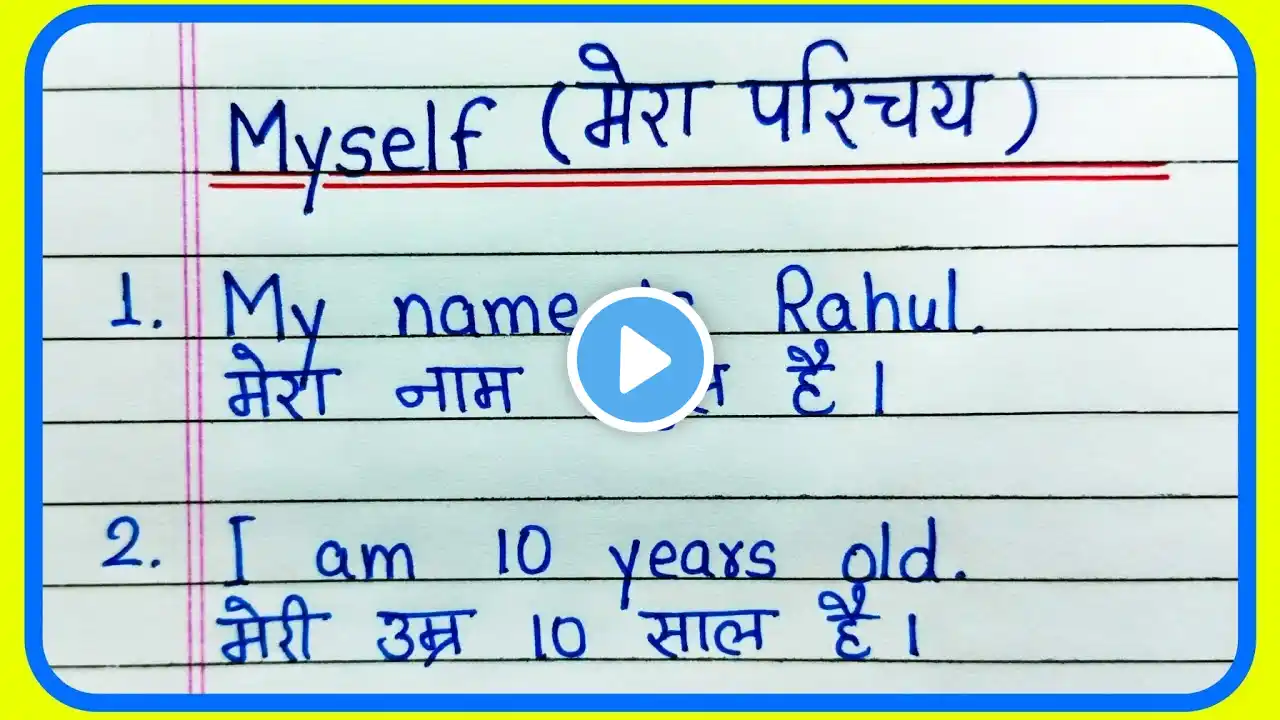 Myself (मेरा परिचय)
1. My name Rahul.
मेरा नाम है।
2. I am 10 years old.
मेरी उम्र 10 साल है।